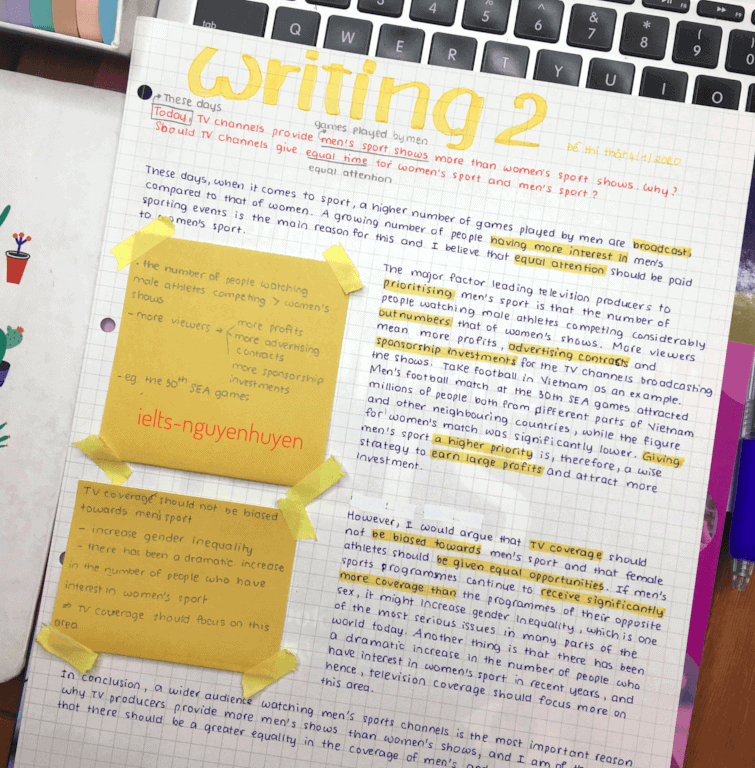 writing 2
đề thi thật 4/1/2020
These days
games played by men
Today, TV channels provide men's sport shows more than women's sport shows. Why?
Should TV channels give equal time for women's sport and men's sport?
equal attention
These days, when it comes to sport, a higher number of games played by men are broadcast,
compared to that of women. A growing number of people having more interest in men's
sporting events is the main reason for this and I believe that equal attention should be paid
to women's sport.
- the number of people watching
male athletes competing > women's
shows
- more viewers → more profits
more advertising
contracts
more sponsorship
investments
- eg the 30th SEA games
ielts-nguyenhuyen
The major factor leading television producers to
prioritising men's sport is that the number of
people watching male athletes competing considerably
outnumbers that of women's shows. More viewers
mean more profits, advertising contracts and
sponsorship investments for the TV channels broadcasting
the shows. Take football in Vietnam as an example.
Men's football match at the 30th SEA games attracted
millions of people both from different parts of Vietnam
and other neighbouring countries, while the figure
for women's match was significantly lower. Giving
men's sport a higher priority is, therefore, a wise
strategy to earn large profits and attract more
investment.
TV coverage should not be biased
towards men's sport
- increase gender inequality
- there has been a dramatic increase
in the number of people who have
interest in women's sport
⇒ TV coverage should focus on this
area
However, I would argue that TV coverage should
not be biased towards men's sport and that female
athletes should be given equal opportunities. If men's
sports programmes continue to receive significantly
more coverage than the programmes of their opposite
sex, it might increase gender inequality, which is one
of the most serious issues in many parts of the
world today. Another thing is that there has been
a dramatic increase in the number of people who
have interest in women's sport in recent years, and
hence, television coverage should focus more on
this area.
In conclusion, a wider audience watching men's sports channels is the most important reason
why TV producers provide more men's shows than women's shows, and I am of
that there should be a greater equality in the coverage of men's and
tab
Q W E R T Y U I O
4
5
6
&
7
*
8
(
9